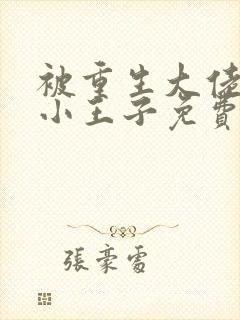 被重生大佬
小王子免費
張豪雷